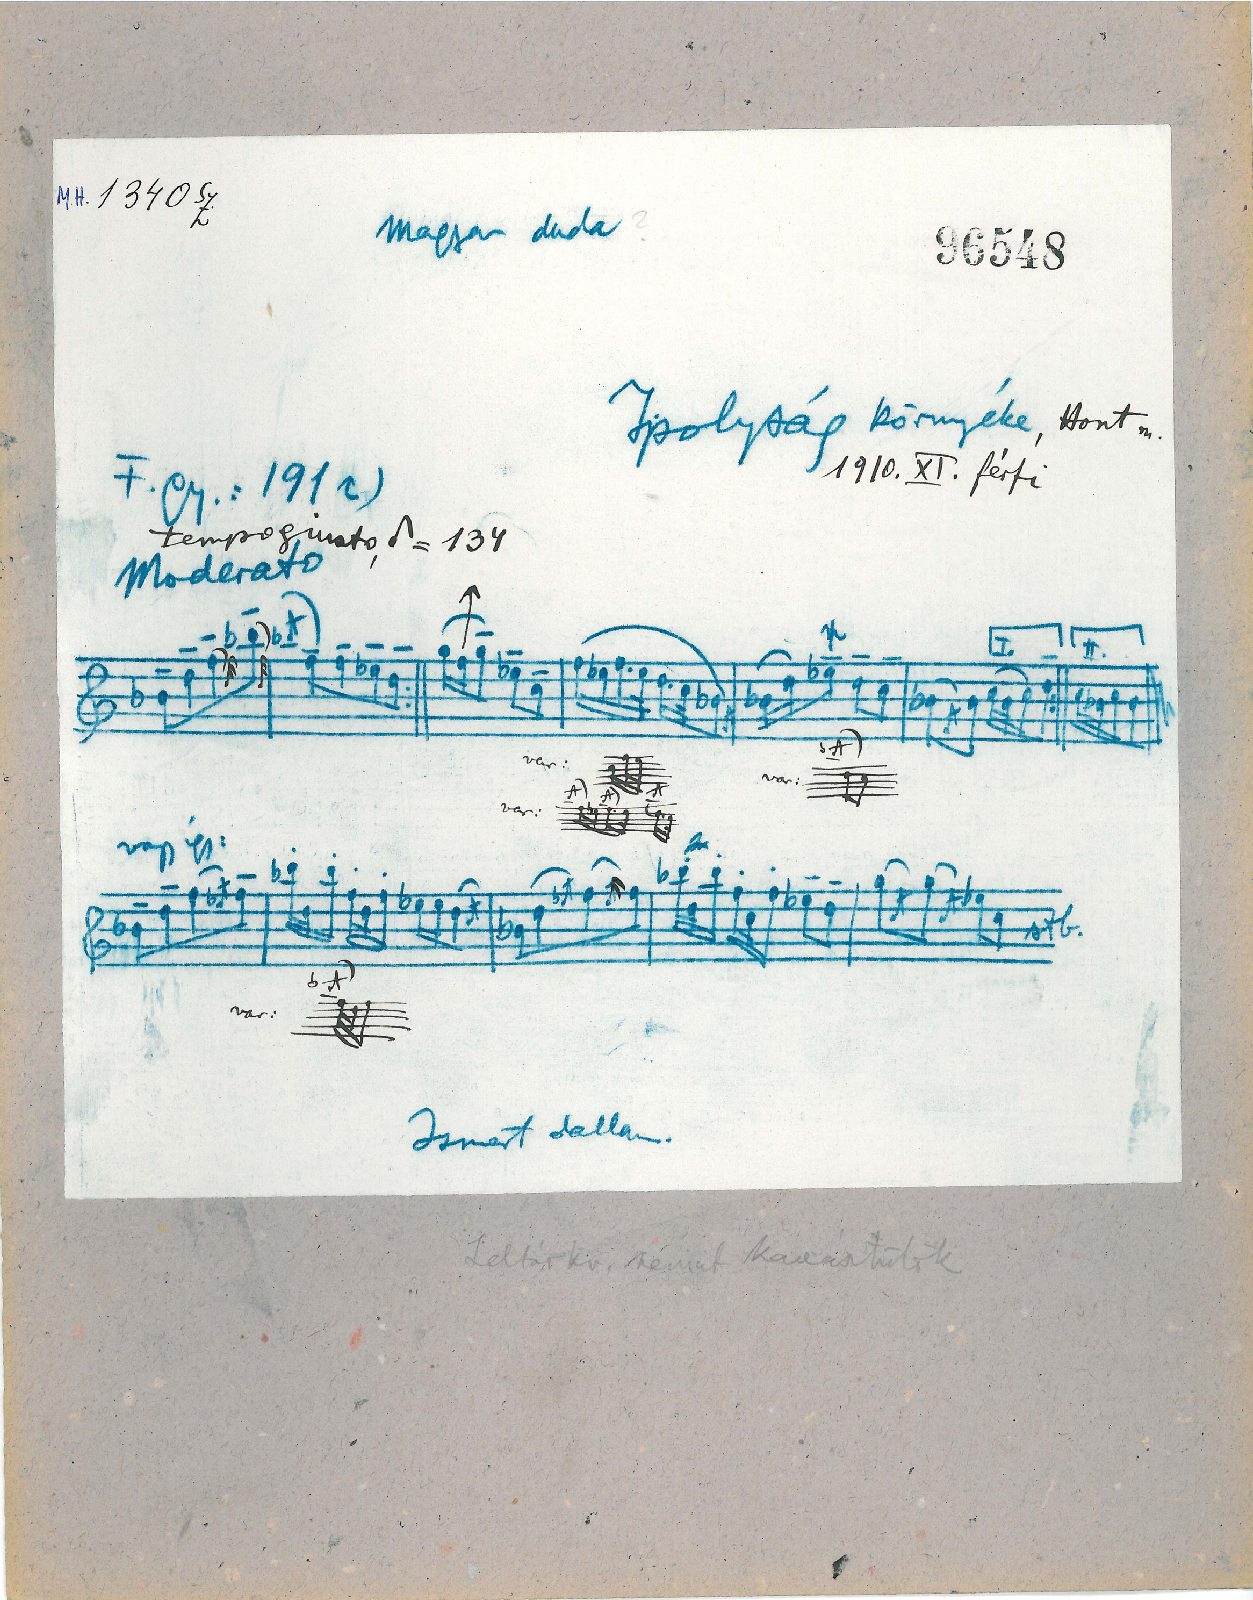 M.H. 1340
Magyar duda ?
96548
Ipolyság környéke, Hont m.
1910. XI. férfi
F. Gy.: 191
tempo giusto, = 134
Moderato
I. II.
var:
var:
var:
vagy így:
stb.
var:
Ismert dallam.
Leltárkv.